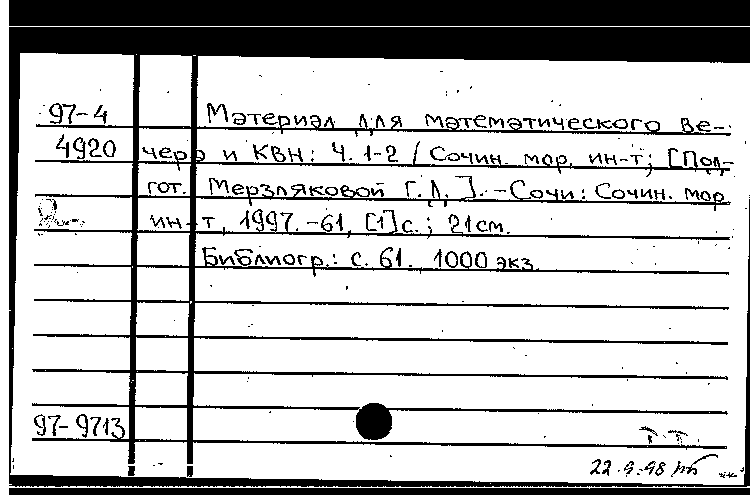 97-4 Материал для математического ве-
4920 чера и КВН: Ч. 1-2 / Сочин. мор. ин-т; [Под-
гот. Мерзляковой Г.Л.]. - Сочи: Сочин. мор.
ин-т, 1997. - 61, [1] с.; 21 см.
Библиогр.: с. 61. 1000 экз.
97-9713
22.9.98